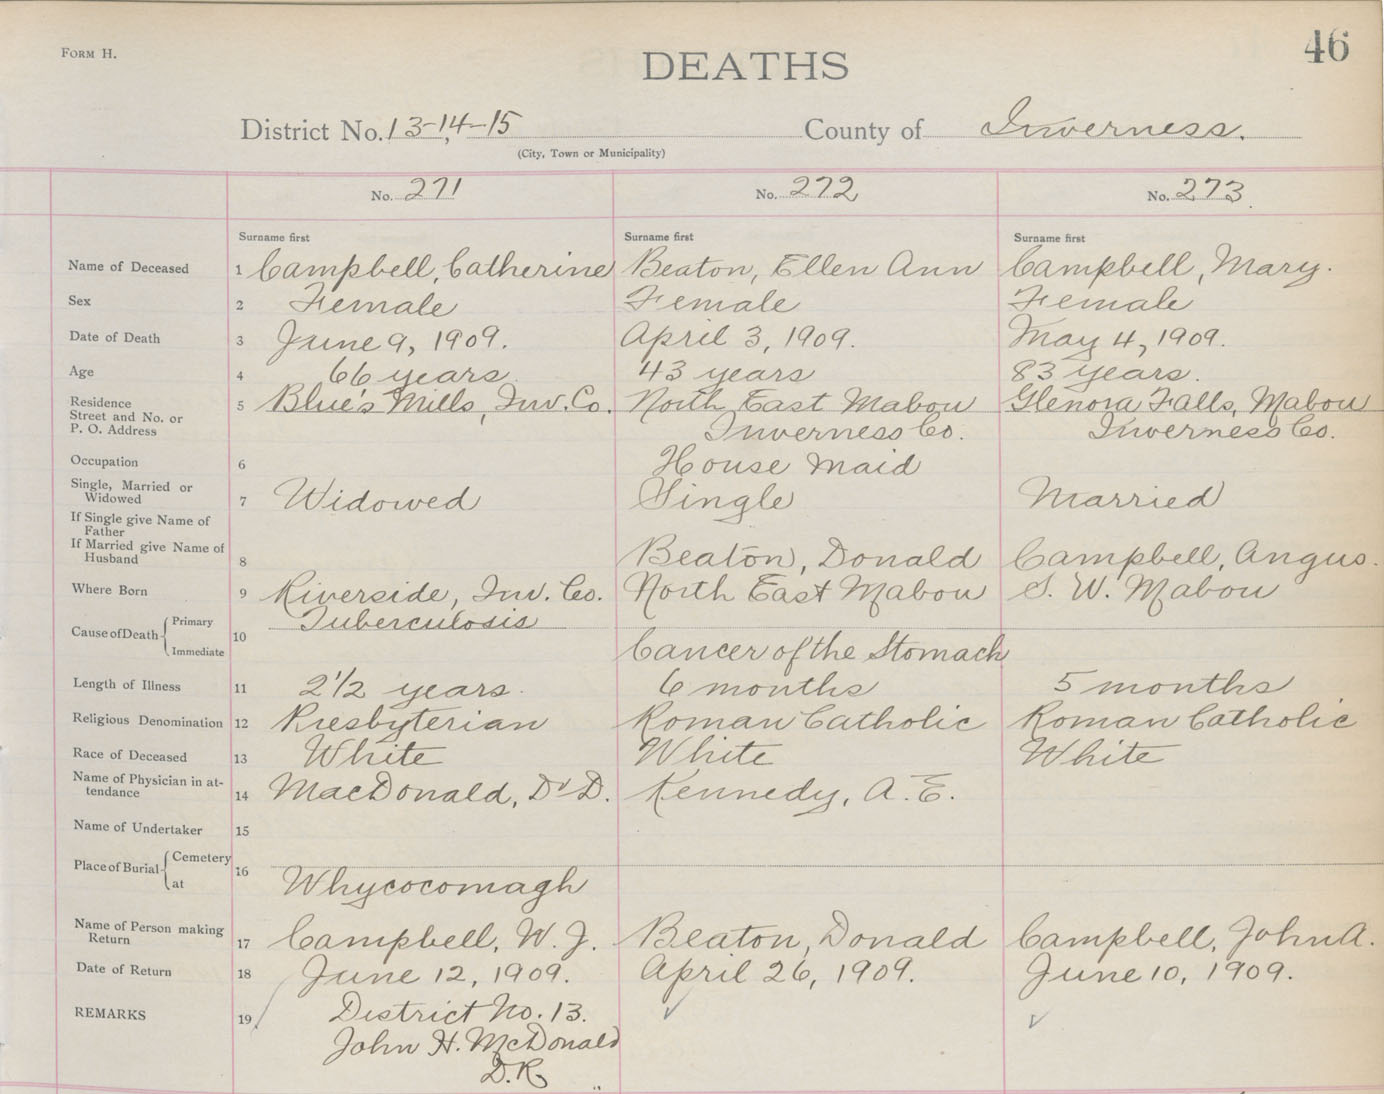 Form H.
DEATHS
46
District No. 13-14-15 County of Inverness.
(City, Town or Municipality)
No. 271 No. 272 No. 273.
Surname first Surname first Surname first
Name of Deceased 1 Campbell, Catherine Beaton, Ellen Ann Campbell, Mary.
Sex 2 Female Female Female
Date of Death 3 June 9, 1909. April 3, 1909. May 4, 1909.
Age 4 66 years. 43 years 83 years.
Residence Street and No. or P. O. Address 5 Blue's Mills, Inv. Co. North East Mabou Glenora Falls, Mabou
Inverness Co. Inverness Co.
Occupation 6 House Maid
Single, Married or Widowed 7 Widowed Single Married
If Single give Name of Father
If Married give Name of Husband 8 Beaton, Donald Campbell, Angus.
Where Born 9 Riverside, Inv. Co. North East Mabou S. W. Mabou
Cause of Death Primary 10 Tuberculosis
Immediate Cancer of the Stomach
Length of Illness 11 2 1/2 years. 6 months 5 months
Religious Denomination 12 Presbyterian Roman Catholic Roman Catholic
Race of Deceased 13 White White White
Name of Physician in attendance 14 MacDonald, Dr D. Kennedy, A. E.
Name of Undertaker 15
Place of Burial Cemetery 16
at Whycocomagh
Name of Person making Return 17 Campbell, W. J. Beaton, Donald Campbell, John A.
Date of Return 18 June 12, 1909. April 26, 1909. June 10, 1909.
REMARKS 19 District No. 13.
John H. McDonald
D.R.